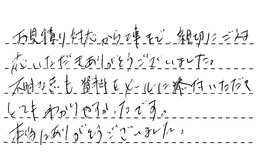 お見積り対応から工事まで、親切にご対
応いただきありがとうございました。
不明な点も資料をメールに添付いただき
とてもわかりやすかったです。
本当にありがとうございました。